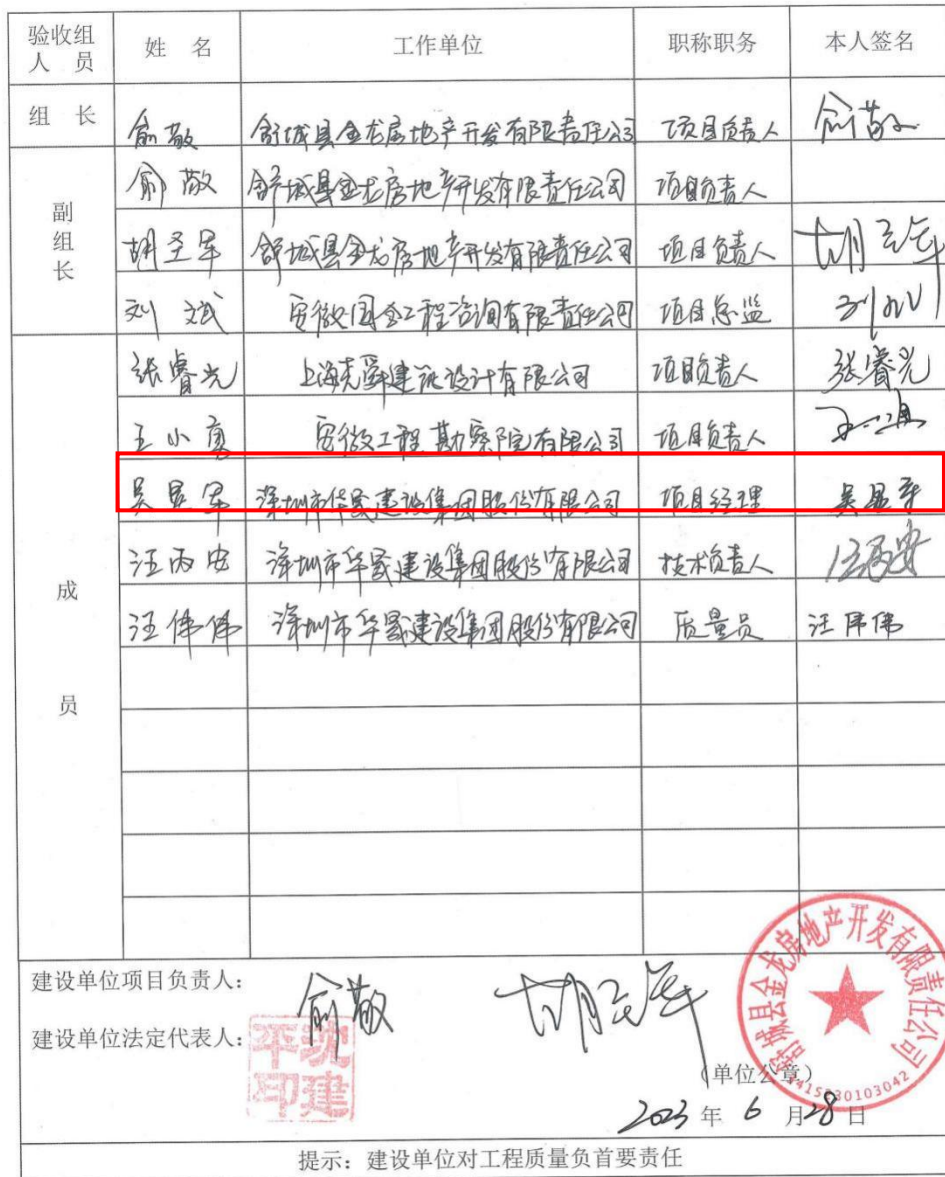 验收组人员 姓 名 工作单位 职称职务 本人签名
组 长 俞敬 舒城县金龙房地产开发有限责任公司 项目负责人 俞敬
副组长 俞敬 舒城县金龙房地产开发有限责任公司 项目负责人
胡圣军 舒城县金龙房地产开发有限责任公司 项目负责人 胡圣军
刘斌 安徽国金工程咨询有限责任公司 项目总监 刘斌
成员 张睿光 上海尧舜建筑设计有限公司 项目负责人 张睿光
王小勇 安徽工程勘察院有限公司 项目负责人
吴昆军 深圳市华晟建设集团股份有限公司 项目经理 吴昆军
汪丙安 深圳市华晟建设集团股份有限公司 技术负责人 汪丙安
汪伟伟 深圳市华晟建设集团股份有限公司 质量员 汪伟伟
建设单位项目负责人: 俞敬 胡圣军
建设单位法定代表人: 沈建平印
舒城县金龙房地产开发有限责任公司
(单位公章)
2023 年 6 月 28 日
提示:建设单位对工程质量负首要责任